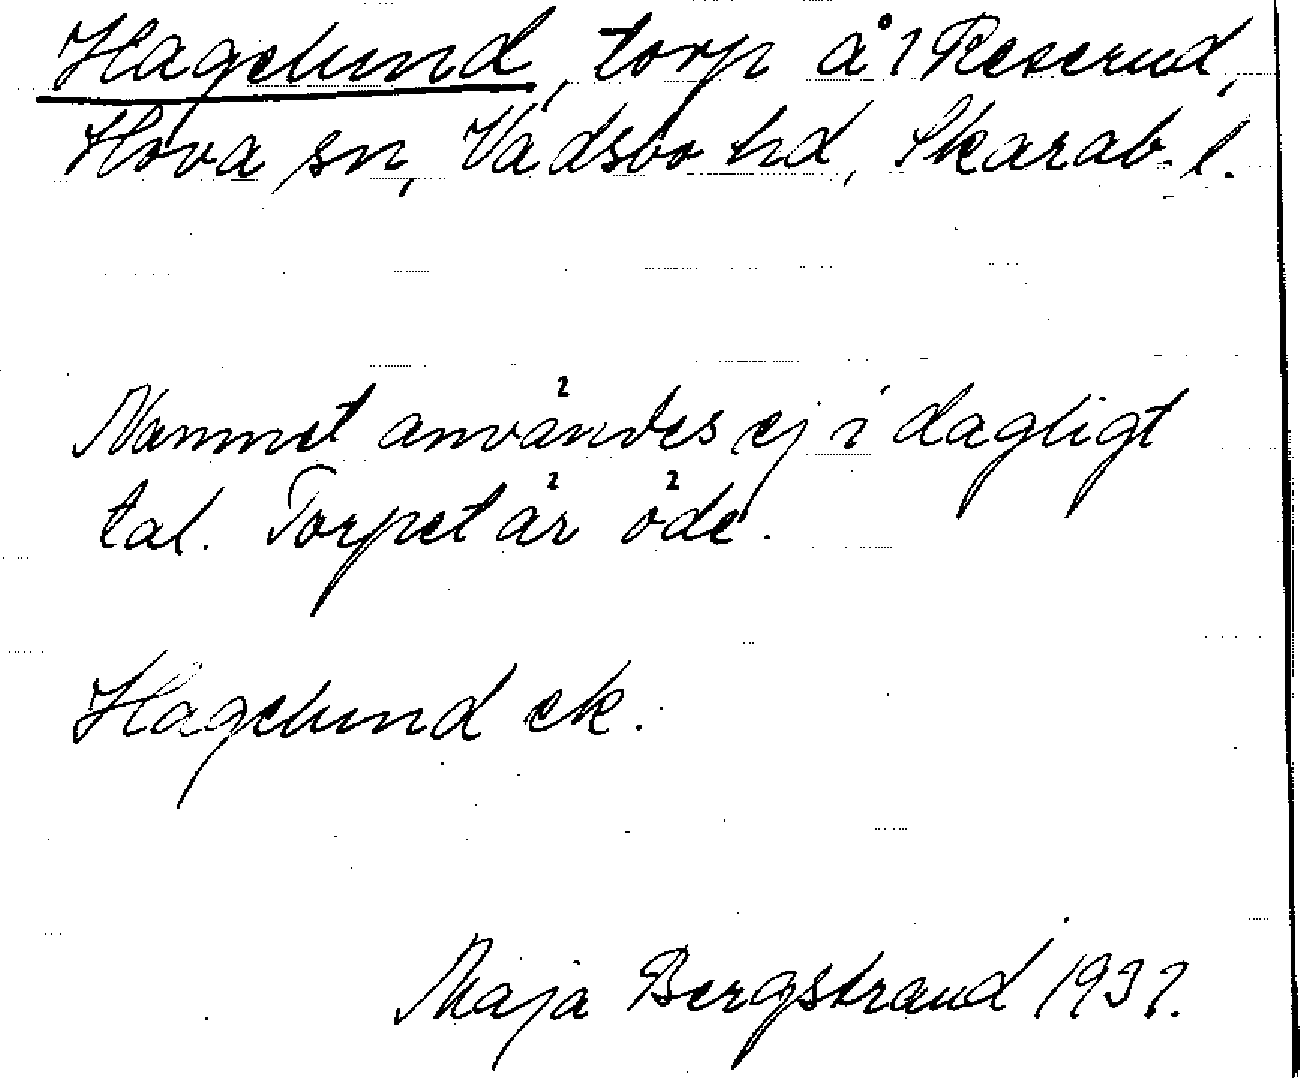 Hagelund, torp å 1 Reserud,
Hova sn, Vadsbo hd, Skarab. l.
Namnet användes ej i dagligt
tal. Torpet är öde.
Hagelund ek.
Maja Bergstrand 1937.